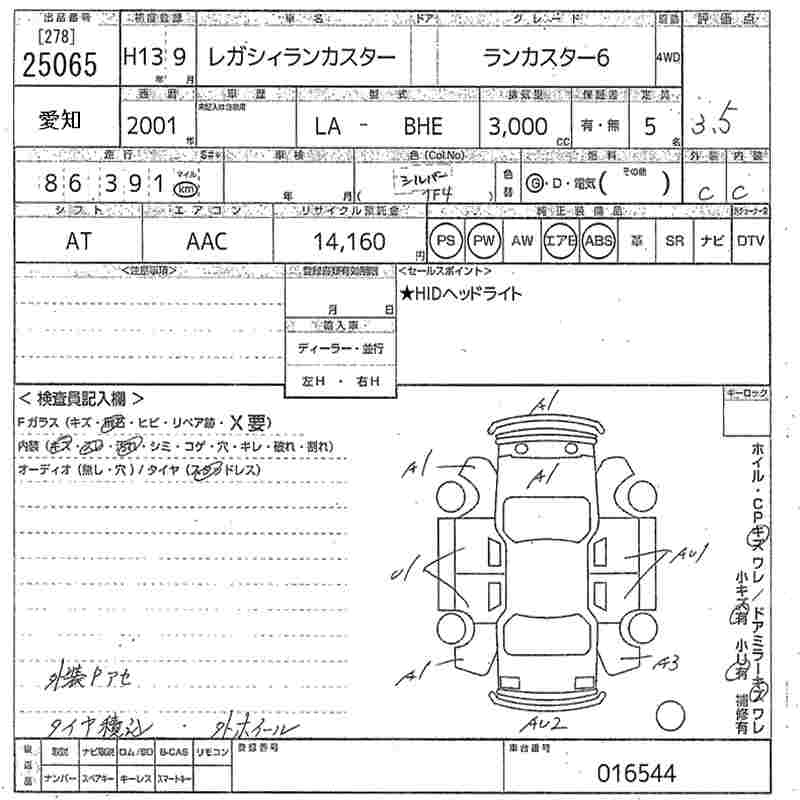 出品番号 初度登録 車名 ドア グレード 評価点
[278]
25065 H13 9 レガシィランカスター ランカスター6 4WD
年 月
西暦 車歴 型式 排気量 保証書 定員
愛知 2001 LA - BHE 3,000 有・無 5 3.5
年 CC 名
走行 車検 色(Col.No) 燃料 外装 内装
86391 マイル km 年 月 ( シルバー 1F4 ) 色替 G・D・電気 ( その他 ) C C
シフト エアコン リサイクル預託金 純正装備品
AT AAC 14,160 円 PS PW AW エアB ABS 革 SR ナビ DTV
<注意事項> <セールスポイント>
★HIDヘッドライト
月 日
輸入車
ディーラー・並行
左H ・ 右H
< 検査員記入欄 > キーロック
Fガラス (キズ・飛石・ヒビ・リペア跡・X要)
内装 (キズ・スレ・汚れ・シミ・コゲ・穴・キレ・破れ・割れ)
オーディオ (無し・穴) / タイヤ (スタッドレス)
A1
A1 A1
U1 AU1
A1 A3
AU2
ホイル・CPキズ ワレ / ドアミラーキズ ワレ
小キズ有 小U有 補修有
外装Pアセ
タイヤ積込 ・ 外ホイール
後返品 取説 ナビ取説 ロム/SD B-CAS リモコン 登録番号 車台番号
ナンバー スペアキー キーレス スマートキー 016544